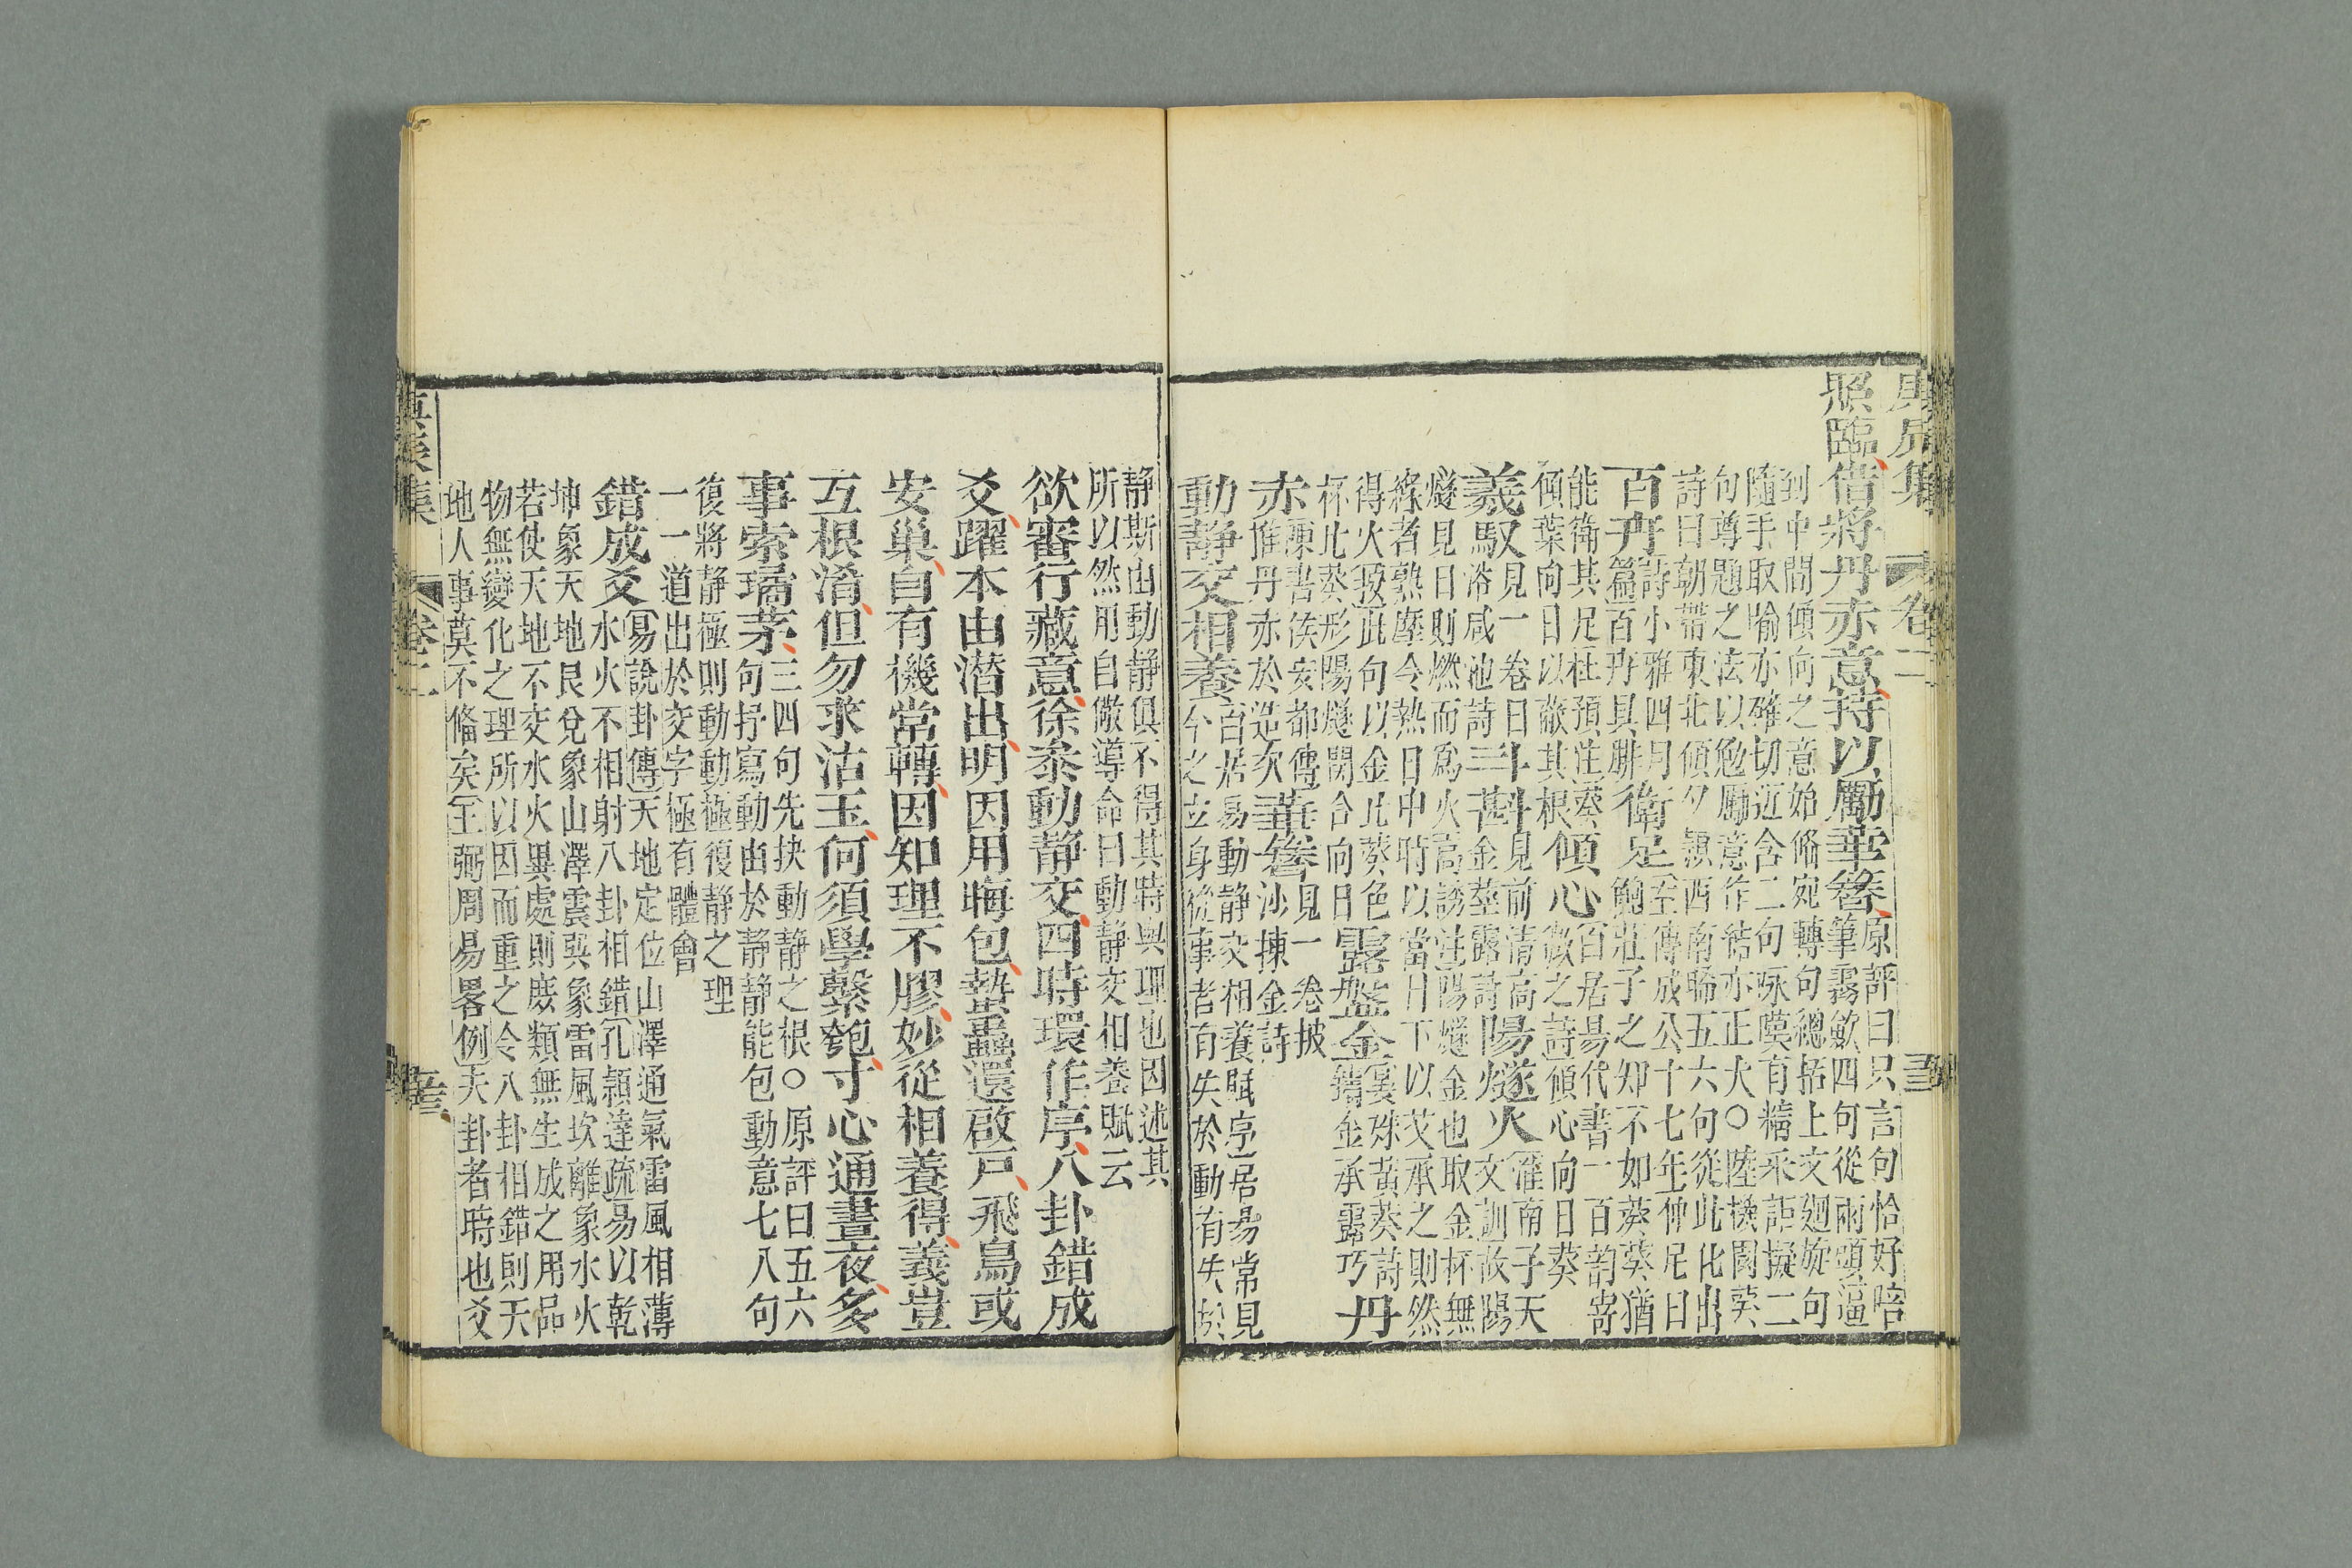 照臨借將丹赤意持以勵華簪原評曰只言句恰好唔
筆霧歛四句從兩頭逼
到中間傾向之意始翛宛轉句總括上文廻旋句
隨手取喻亦確切近含二句咏嘆有精采詎擬二
句尊題之法以勉勵意作結亦正大○陸機園葵
詩曰朝帶東北傾夕穎西南晞五六句從此化出
百卉詩小雅四月
篇百卉具腓衛足左傳成公十七年仲尼曰
鮑莊子之知不如葵葵猶
能衛其足杜預注葵
傾葉向日以蔽其根傾心百居易代書一百韵寄
微之詩傾心向日葵
羲馭見一卷日
浴咸池詩斗科見前清高
甚金莖露詩陽燧火淮南子天
文訓故陽
燧見日則燃而爲火高誘注陽燧金也取金杯無
緣者熟摩令熱日中時以當日下以艾承之則然
得火投此句以金此葵色
杯比葵形陽燧開合向日露盤金裏殊黃葵詩
鑄金承露巧丹
赤陳書侯安都傳
推丹赤於造次華簪見一卷披
沙揀金詩
動靜交相養白居易動靜交相養賦序居易常見
今之立身從事者有失於動有失於
靜斯由動靜俱不得其時與理也因述其
所以然用自儆導命曰動靜交相養賦云
欲審行藏意徐叅動靜交四時環作序八卦錯成
爻躍本由潜出明因用晦包蟄蟲還啟戸飛鳥或
安巢自有機常轉因知理不膠妙從相養得義豈
互根淆但勿求沽玉何須學繫匏寸心通晝夜多
事索瓊茅三四句先抉動靜之根○原評曰五六
句抒寫動由於靜靜能包動意七八句
復將靜極則動動極復靜之理
一一道出於交字極有體會
錯成爻易說卦傳天地定位山澤通氣雷風相薄
水火不相射八卦相錯孔穎達疏易以乾
坤象天地艮兌象山澤震巽象雷風坎離象水火
若使天地不交水火異處則庶類無生成之用品
物無變化之理所以因而重之令八卦相錯則天
地人事莫不備矣王弼周易畧例夫卦者時也爻
卷二